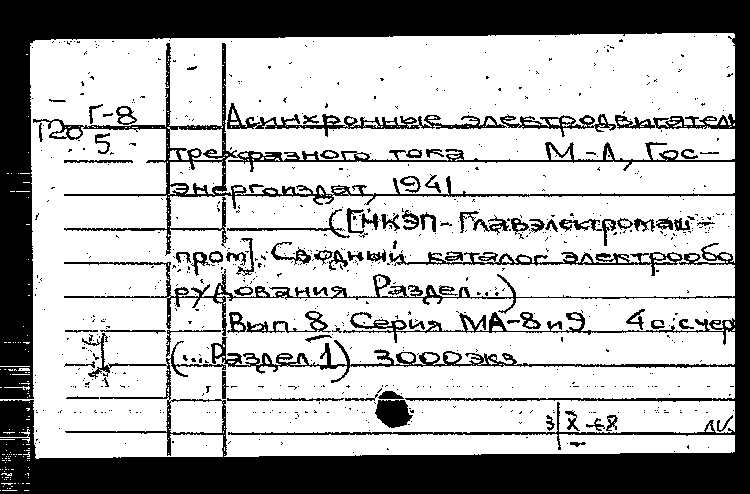 Г-8
Т20
5
Асинхронные электродвигатель
трехфазного тока. М-Л, Гос-
энергоиздат, 1941.
([НКЭП-Главэлектромаш-
пром]. Сводный каталог электрообо
рудования. Раздел...)
Вып. 8. Серия МА-8 и 9. 4 с. с чер
(...Раздел 1) 3000 экз.